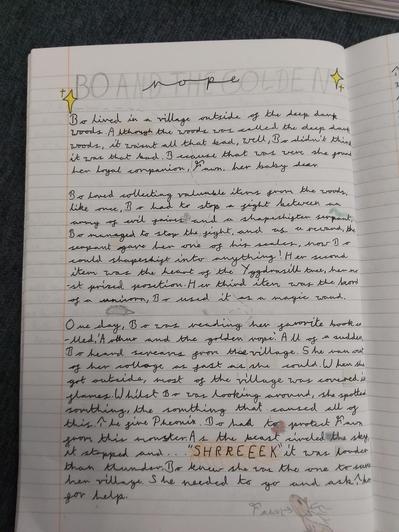 BO AND THE GOLDEN
nope
Bo lived in a village outside of the deep dark
woods. Although the woods was called the deep dark
woods, it wasnt all that bad, well, Bo didn't think
it was that bad. Because that was were she found
her loyal companion, Fawn, her baby deer.
Bo loved collecting valuable items from the woods,
like once, Bo had to stop a fight between an
army of evil fairies and a shapeshifter serpant,
Bo managed to stop the fight, and as a reward, the
serpant gave her one of his scales, now Bo
could shapeshift into anything! Her second
item was the heart of the Yggdrasill tree, her mo
-st prized position. Her third item was the horn
of a unicorn, Bo used it as a magic wand.
One day, Bo was reading her favorite book
-lled, 'Arthur and the golden rope'. All of a sudden,
Bo heard screams from the village. She ran out
of her collage as fast as she could. When she
got outside, most of the village was covered in
flames. Whilst Bo was looking around, she spotted
somthing, the somthing that caused all of
this. The fire Pheonix. Bo had to protect Fawn
from this monster. As the beast circled the sky,
it stopped and... "SHRREEEK" it was louder
than thunder. Bo knew she was the one to save
her village. She needed to go and ask
for help.
Fawn